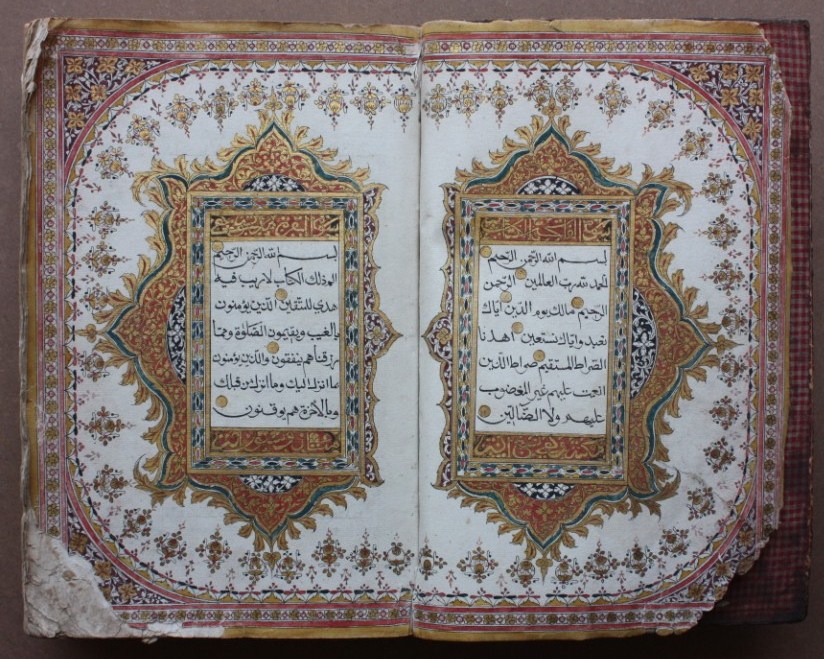 بسم الله الرحمن الرحيم
الحمد لله رب العالمين الرحمن
الرحيم مالك يوم الدين اياك
نعبد واياك نستعين اهدنا
الصراط المستقيم صراط الذين
انعمت عليهم غير المغضوب
عليهم ولا الضالين
بسم الله الرحمن الرحيم
الم ذلك الكتاب لا ريب فيه
هدي للمتقين الذين يؤمنون
بالغيب ويقيمون الصلوة ومما
رزقناهم ينفقون والذين يؤمنون
بما انزل اليك وما انزل من قبلك
وبالاخرة هم يوقنون